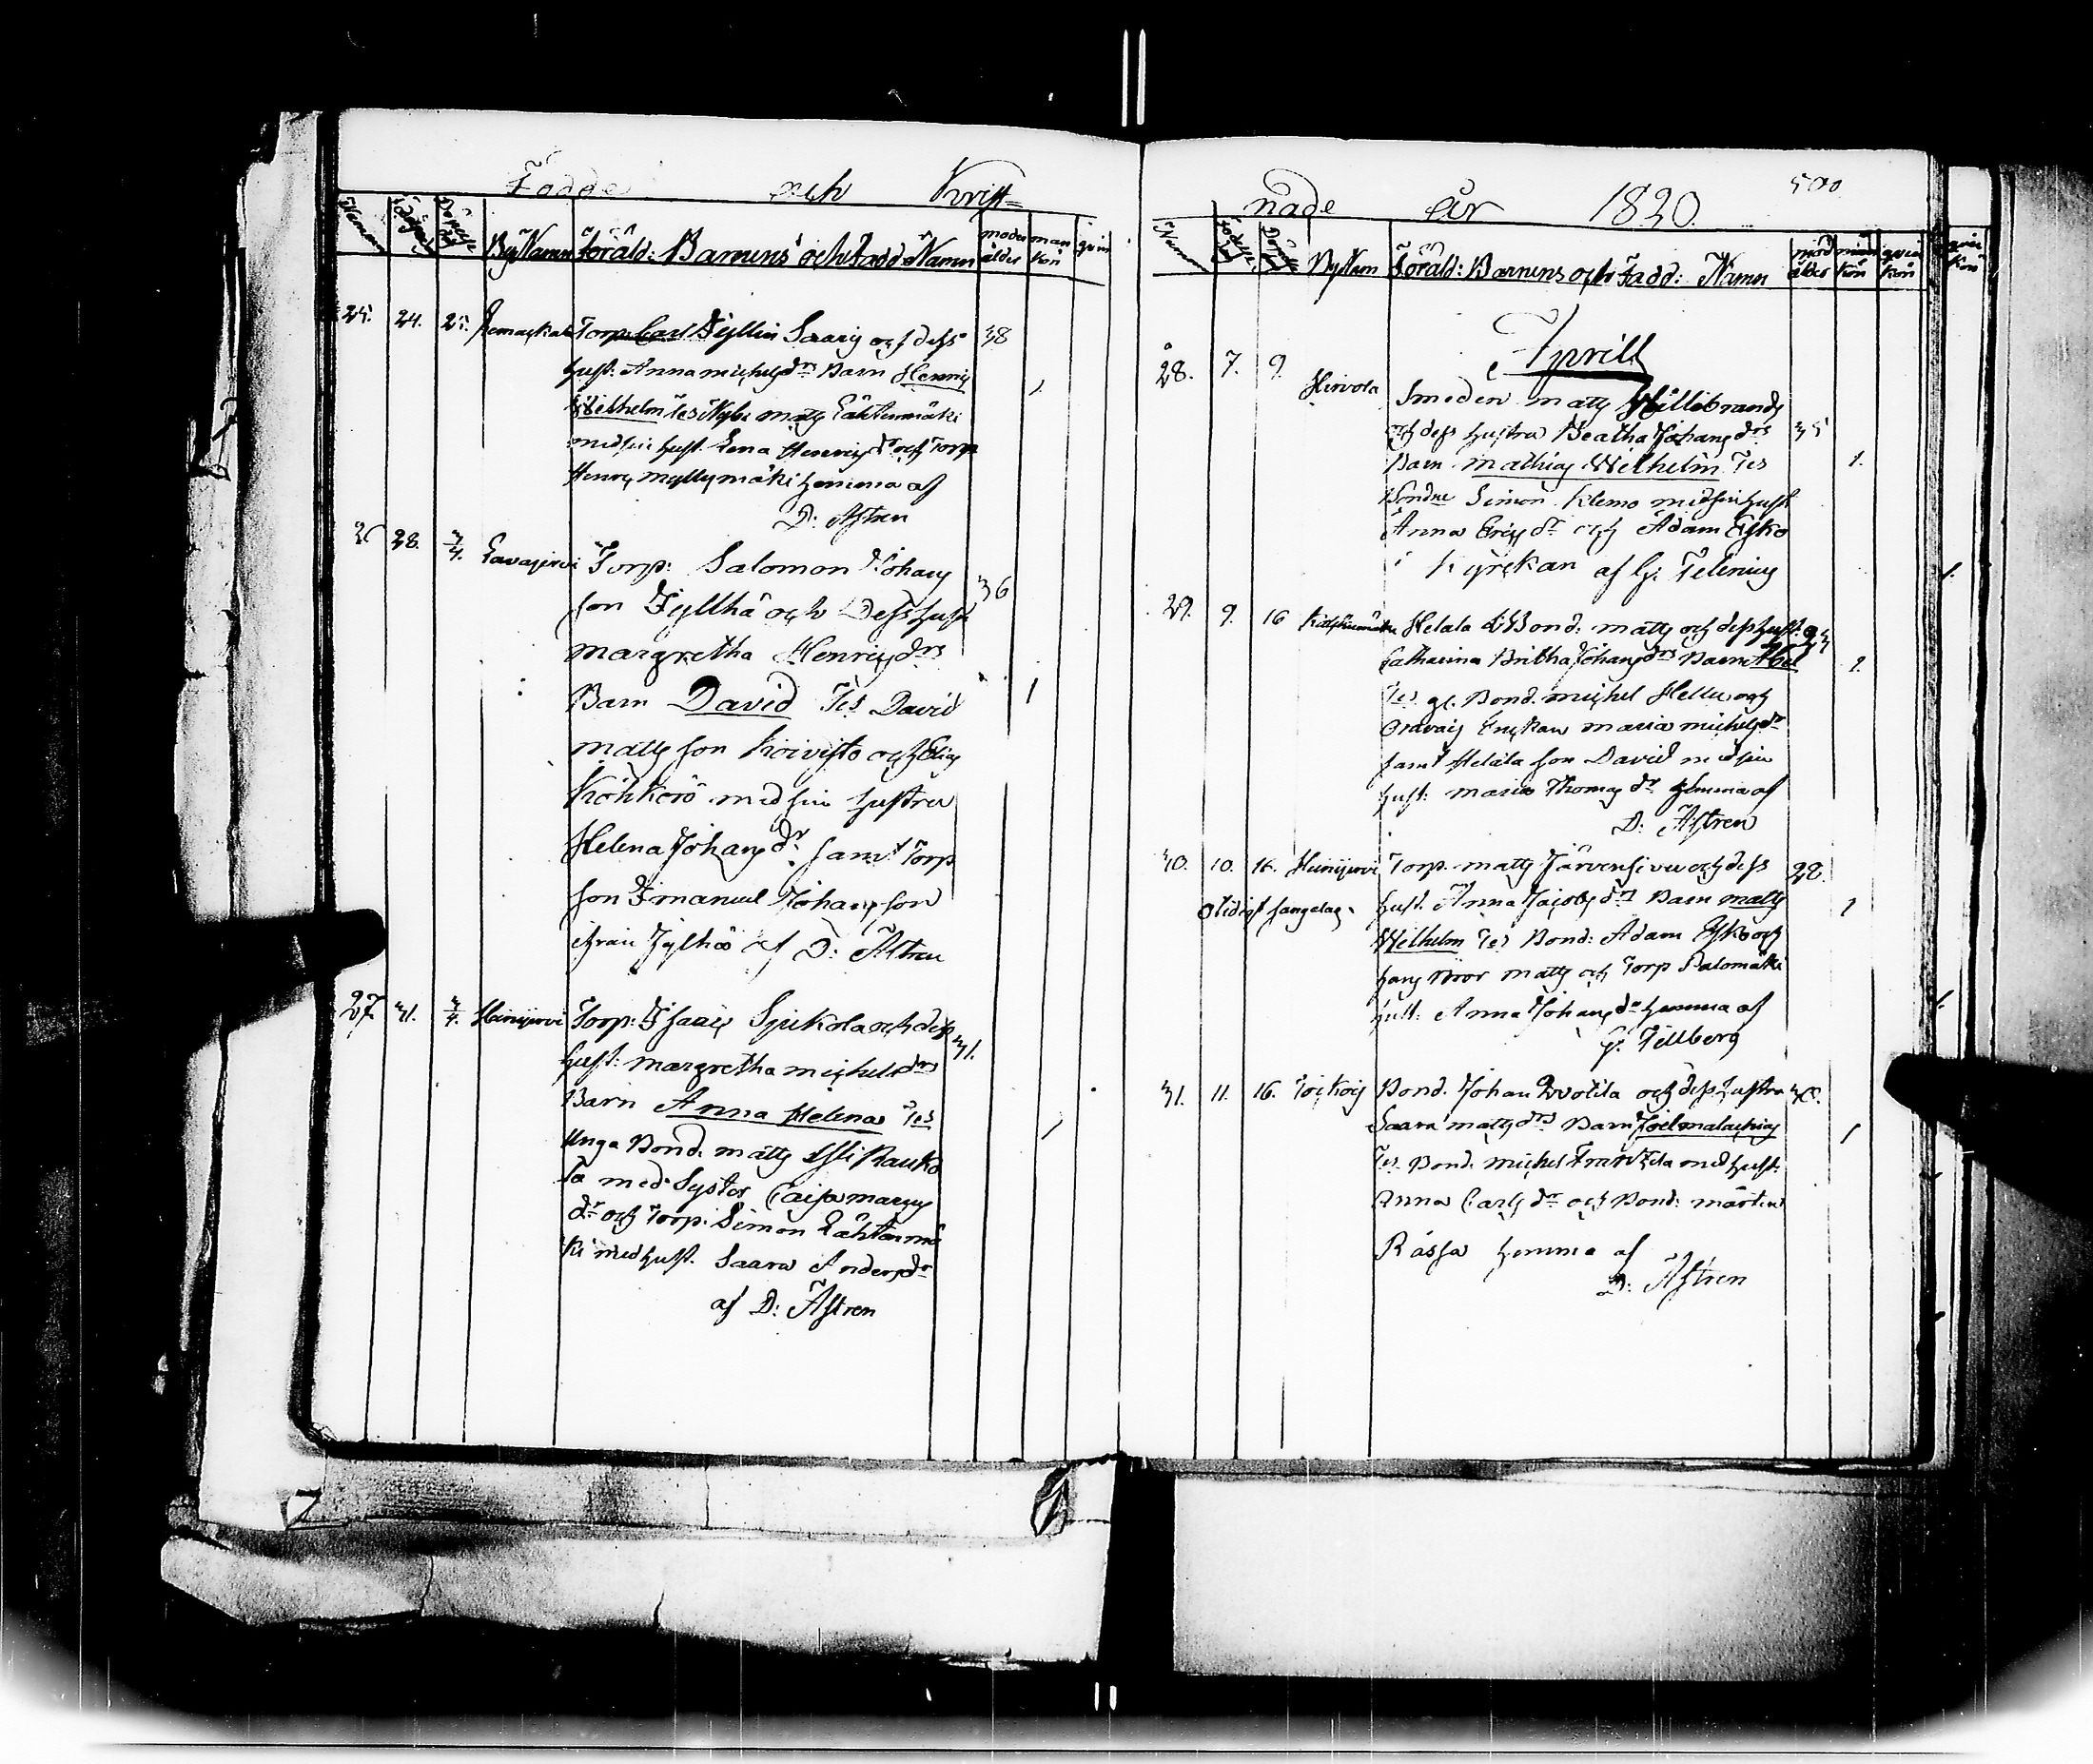 Födde och Krist=
Nummer Födelse Döpelse By Namn Föräld: Barnens och Fadd: Namn moder ålder man kön qvin
25. 24. 25. Torp: Carl Jyllin Saarij och dess 38
hust: Anna michelsdrs Barn Henric 1
Wilhelm Tes Nyb: matts Lähteenmäki
med sin hust. Lena Henricsdr och Torp
Henric myllymäki hemma af
D: Astren
26 28. 3/4. Lavajervi Torp: Salomon Johans 36
son Jylthä och Dess hust
margretha Henricsdrs
Barn David Tes David 1
matts son Koivisto och Elias
Köhkörö med sin hustru
Helena Johansdr. samt Torp
son Imanuel Johansson
ifrån Jylhä af D: Astren
27. 31. 3/4. Heinijervi Torp: Isaac Sjukola och dess 31.
hust: margretha michelsdrs
Barn Anna Helena Tes 1
Unga Bond. matts Yli Rauko
la med Syster Caisa mattis
dr och Torp: Simon Lähtenmä
ki med hust. Saara Andersdr
af D: Astren
nade år 1820. 500
Numm Födelse Döpelse By Nam Föräld: Barnens och Fadd: Namn mod ålder man kön qvin kön
Aprill
28. 7. 9. Hirvola Smeden matts Hillebrands
och dess hustru Beatha Johansdrs 35
Barn mathias Wilhelm Tes 1.
Bonden Simon Klemo med sin hust
Anna Ericsdr och Adam Esko
i Kyrckan af G: Telenius
29. 9. 16 Helala Bond: matts och dess hust: 23
Catharina Britha Johansdrs Barn Abel 1.
Tes gl. Bond. michel Hellu och
Oravais Enckan maria michelsdr
samt Helala son David med sin
hust: maria Thomasdr hemma af
D: Astren
30. 10. 16. Heinijervi Torp. matts Järvensivu och dess 28.
Otidigt sängelag. hust. Anna Jacobsdrs Barn matts 1
Wilhelm Tes Bond: Adam Esko och
hans Bror matts och Torp Palomäki
hust: Anna Johansdr hemma af
G. Tillberg
31. 11. 16. Jockois Bond. Johan Wvolila och dess hustru 38.
Saara mattsdrs Barn Joel malachias 1
Tes Bond. michel Frantzila med hust:
Anna Carlsdr och Bond: mårten
Rässa hemma af
D: Astren